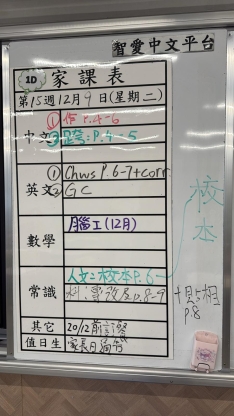 智愛中文平台
1D 家課表
第15週12月9日(星期二)
中文
① 作 P.4-6
② 跨:P.4-5
英文
① Chws P.6-7+corr
② GC
數學
腦I(12月)
常識
人文:校本P.6-
科:事改及p.8-9
校本
p.8
其它
20/12前
值日生
家長日通告